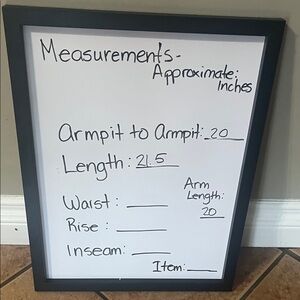 Measurements-
Approximate:
Inches
Armpit to Armpit: 20
Length: 21.5
Arm
Length:
20
Waist: ____
Rise: ____
Inseam: ____
Item: ____